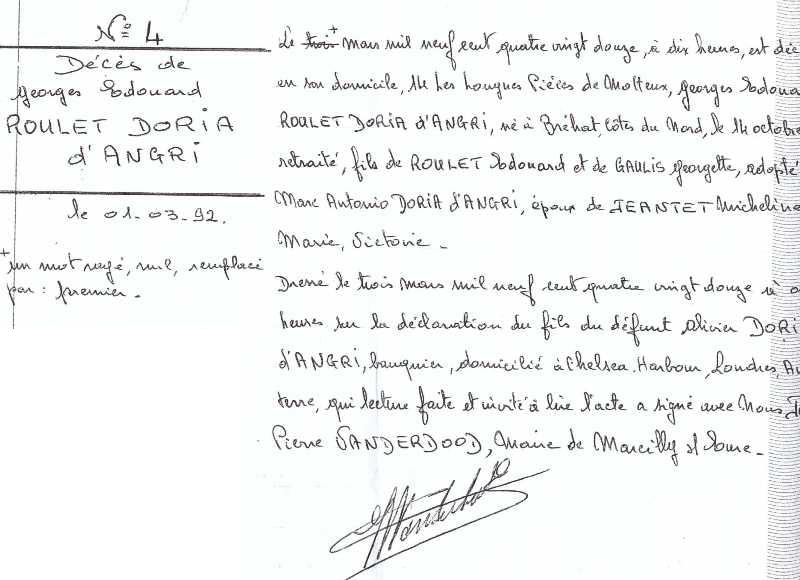 N° 4
Décès de
Georges Edouard
ROULET DORIA
d'ANGRI
le 01-03-92.
+ un mot rayé, nul, remplacé
par : premier.
Le trois + mars mil neuf cent quatre vingt douze, à dix heures, est déc
en son domicile, 14 Les Longues Pièces de Motteux, Georges Edoua
ROULET DORIA d'ANGRI, né à Bréhat, Côtes du Nord, le 14 octobre
retraité, fils de ROULET Edouard et de GAULIS Georgette, adopté
Marc Antonio DORIA d'ANGRI, époux de JEANTET Micheline
Marie, Victorie -
Dressé le trois mars mil neuf cent quatre vingt douze à o
heures sur la déclaration du fils du défunt Olivier DORI
d'ANGRI, banquier, domicilié à Chelsea Harbour, Londres, An
terre, qui lecture faite et invité à lire l'acte a signé avec Nous, J
Pierre VANDERDOOD, Maire de Marcilly s/ Eure -